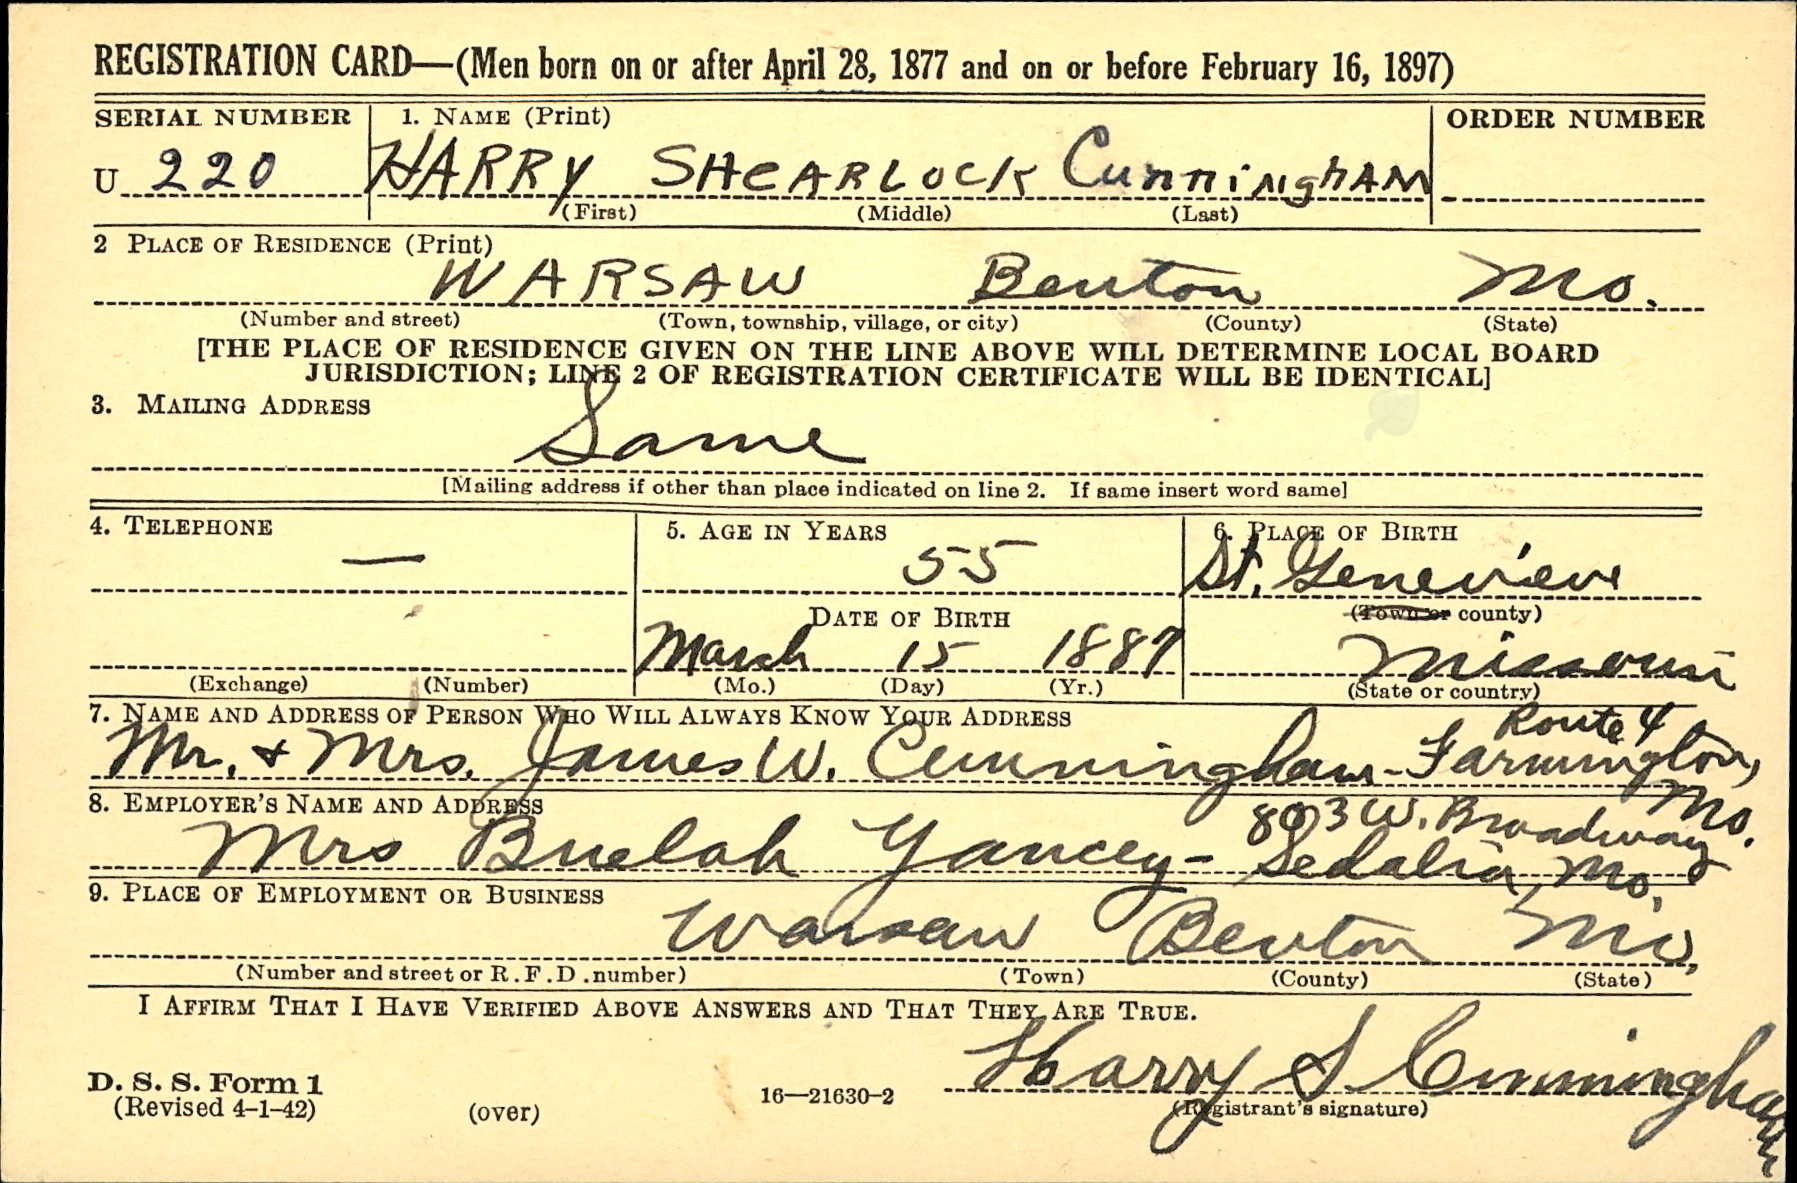 REGISTRATION CARD—(Men born on or after April 28, 1877 and on or before February 16, 1897)
SERIAL NUMBER 1. NAME (Print) ORDER NUMBER
U 220 HARRY SHEARLOCK CunningHAM
(First) (Middle) (Last)
2 PLACE OF RESIDENCE (Print)
WARSAW Benton Mo.
(Number and street) (Town, township, village, or city) (County) (State)
[THE PLACE OF RESIDENCE GIVEN ON THE LINE ABOVE WILL DETERMINE LOCAL BOARD
JURISDICTION; LINE 2 OF REGISTRATION CERTIFICATE WILL BE IDENTICAL]
3. MAILING ADDRESS
Same
[Mailing address if other than place indicated on line 2. If same insert word same]
4. TELEPHONE 5. AGE IN YEARS 6. PLACE OF BIRTH
— 55 St. Genevieve
DATE OF BIRTH (Town or county)
March 15 1887 Missouri
(Exchange) (Number) (Mo.) (Day) (Yr.) (State or country)
7. NAME AND ADDRESS OF PERSON WHO WILL ALWAYS KNOW YOUR ADDRESS Route 4
Mr. & Mrs. James W. Cunningham - Farmington,
Mo.
8. EMPLOYER'S NAME AND ADDRESS 803 W. Broadway
Mrs Buelah Yancey - Sedalia, Mo.
9. PLACE OF EMPLOYMENT OR BUSINESS
Warsaw Benton Mo.
(Number and street or R.F.D. number) (Town) (County) (State)
I AFFIRM THAT I HAVE VERIFIED ABOVE ANSWERS AND THAT THEY ARE TRUE.
Harry S Cunningham
D. S. S. Form 1
(Revised 4-1-42) (over) 16—21630-2 (Registrant's signature)